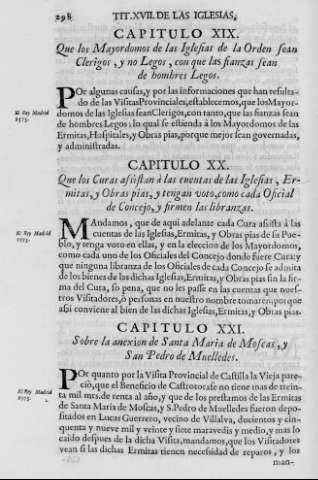 298
TIT.XVII. DE LAS IGLESIAS,
CAPITULO XIX.
Que los Mayordomos de las Iglesias de la Orden sean
Clerigos, y no Legos, con que las fianzas sean
de hombres Legos.
El Rey Madrid
1573.
POr algunas causas, y por las informaciones que han resulta-
do de las Visitas Provinciales, establecemos, que los Mayor-
domos de las Iglesias sean Clerigos, con tanto, que las fianzas sean
de hombres Legos: lo qual se estienda à los Mayordomos de las
Ermitas, Hospitales, y Obras pias, porque mejor sean governadas,
y administradas.
CAPITULO XX.
Que los Curas assistan à las cuentas de las Iglesias, Er-
mitas, y Obras pias, y tengan voto, como cada Oficial
de Concejo, y firmen las libranzas.
El Rey Madrid
1573.
MAndamos, que de aqui adelante cada Cura assista à las
cuentas de las Iglesias, Ermitas, y Obras pias de su Pue-
blo, y tenga voto en ellas, y en la eleccion de los Mayordomos,
como cada uno de los Oficiales del Concejo donde fuere Cura: y
que ninguna libranza de los Oficiales de cada Concejo se admita
de los bienes de las dichas Iglesias, Ermitas, y Obras pias sin la fir-
ma del Cura, so pena, que no les passe en las cuentas que nues-
tros Visitadores, ò personas en nuestro nombre tomaren: porque
assi conviene al bien de las dichas Iglesias, Ermitas, y Obras pias.
CAPITULO XXI.
Sobre la anexion de Santa Maria de Moscas, y
San Pedro de Muelledes.
El Rey Madrid
1573.
POr quanto por la Visita Provincial de Castilla la Vieja pare-
ciò, que el Beneficio de Castrotorafe no tiene mas de trein-
ta mil mrs. de renta al año, y que de los prestamos de las Ermitas
de Santa Maria de Moscas, y S. Pedro de Muelledes fueron depo-
sitados en Lucas Guerrero, vecino de Villalva, ducientos y cin-
quenta y nueve mil y veinte y siete maravedis y medio, y mas lo
caido despues de la dicha Visita, mandamos, que los Visitadores
vean si las dichas Ermitas tienen necesidad de reparos, y los
man-